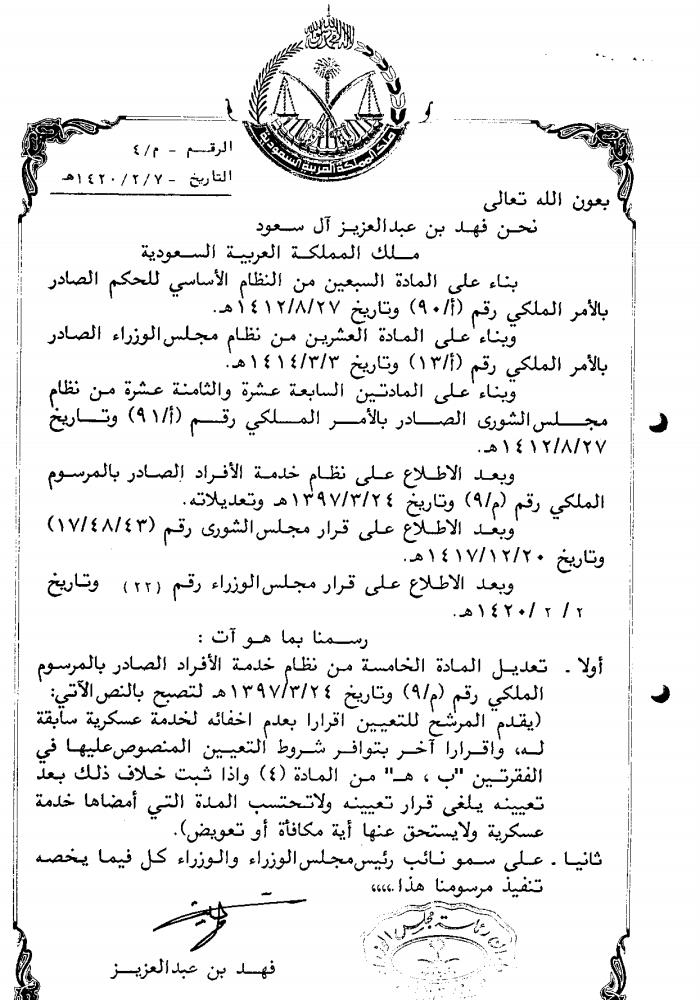 الرقـم - م/٤
التاريخ - ١٤٢٠/٢/٧هـ
ملك المملكة العربية السعودية
بعون الله تعالى
نحـن فهـد بن عبدالعزيز آل سعود
مـلـك المملكـة العربية السـعوديـة
بناء على المادة السبعين من النظام الأساسي للحكم الصادر
بالأمر الملكي رقم (أ/٩٠) وتاريخ ١٤١٢/٨/٢٧هـ.
وبناء على المادة العشرين من نظام مجلس الوزراء الصادر
بالأمر الملكي رقم (أ/١٣) وتاريخ ١٤١٤/٣/٣هـ.
وبناء على المادتـين السابعة عشرة والثامنة عشرة مـن نظام
مجـــلس الشورى الصــادر بالأمــر المــلـكي رقــم (أ/٩١) وتــــاريخ
١٤١٢/٨/٢٧هـ.
وبعـد الاطـلاع على نظام خدمة الأفـراد الصادر بالمرسوم
الملكي رقم (م/٩) وتاريخ ١٣٩٧/٣/٢٤هـ وتعديلاته.
وبعـد الاطلاع على قرار مجلس الشورى رقم (١٧/٤٨/٤٣)
وتاريخ ١٤١٧/١٢/٢٠هـ.
وبعـد الاطلاع على قـرار مجلس الوزراء رقـم (٢٢) وتاريخ
١٤٢٠/٢/٢هـ.
رسـمنا بما هـو آت :
أولا ـ تعديـل المادة الخامسة مـن نظام خدمة الأفراد الصادر بالمرسوم
الملكي رقم (م/٩) وتاريخ ١٣٩٧/٣/٢٤هـ لتصبح بالنص الآتي:
(يقدم المرشح للتعيين اقرارا بعدم اخفائه لخدمة عسكرية سابقة
لـه، واقـرارا آخـر بتوافـر شروط التعيين المنصوص عليها في
الفقرتـين "ب ، هـ" من المادة (٤) واذا ثبت خلاف ذلك بعد
تعيينه يلغى قرار تعيينه ولاتحتسب المدة التي أمضاها خدمة
عسكرية ولايستحق عنها أية مكافأة أو تعويض).
ثانيـا ـ على سمو نائب رئيس مجلس الوزراء والوزراء كل فيما يخصه
تنفيذ مرسومنا هذا ،،،،،
فهـد بن عبدالعزيـز